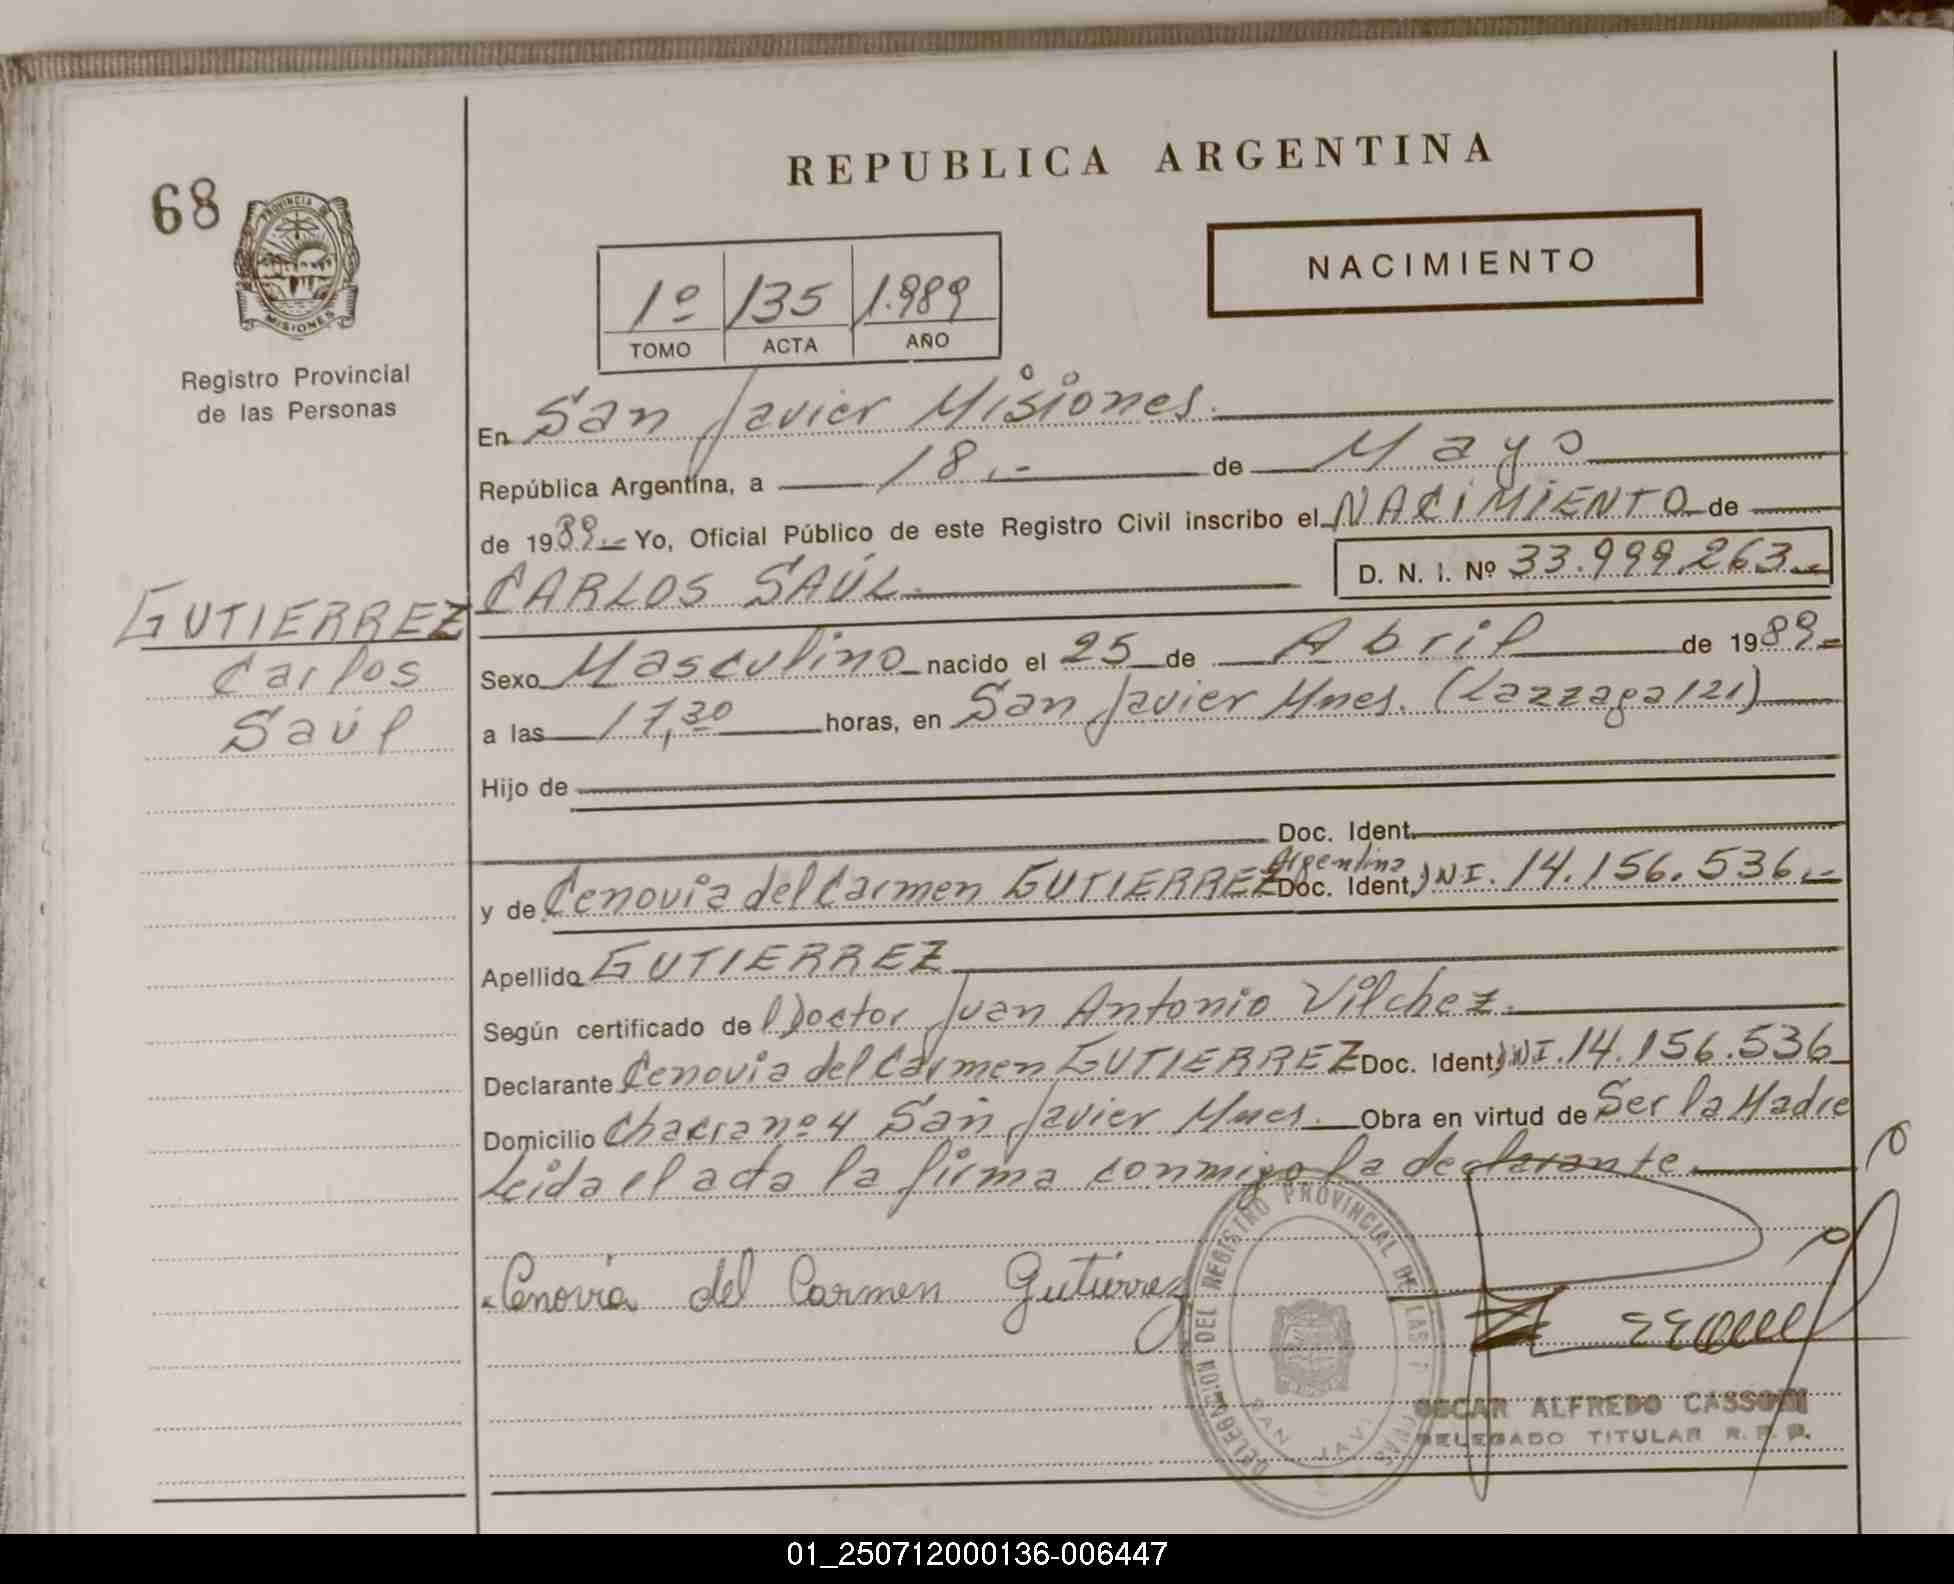 68
PROVINCIA DE
MISIONES
Registro Provincial
de las Personas
GUTIERREZ
Carlos
Saúl
REPUBLICA ARGENTINA
NACIMIENTO
1º 135 1.989
TOMO ACTA AÑO
En San Javier Misiones.
República Argentina, a 18.- de Mayo
de 1989.- Yo, Oficial Público de este Registro Civil inscribo el NACIMIENTO de
CARLOS SAÚL. D. N. I. Nº 33.999.263.-
Sexo Masculino nacido el 25 de Abril de 1989.-
a las 17,30 horas, en San Javier Mnes. (Lazzaga 121)
Hijo de
Doc. Ident.
Argentina
y de Cenovia del Carmen GUTIERREZ Doc. Ident. DNI. 14.156.536.-
Apellido GUTIERREZ
Según certificado de Doctor Juan Antonio Vilchez.
Declarante Cenovia del Carmen GUTIERREZ Doc. Ident. DNI. 14.156.536
Domicilio Chacra nº 4 San Javier Mnes. Obra en virtud de Ser la Madre
Leida el acta la firma conmigo la declarante.
Cenovia del Carmen Gutierrez
DELEGACION DEL REGISTRO PROVINCIAL DE LAS
SAN JAVI
OSCAR ALFREDO CASSONI
DELEGADO TITULAR R. P. P.
01_250712000136-006447